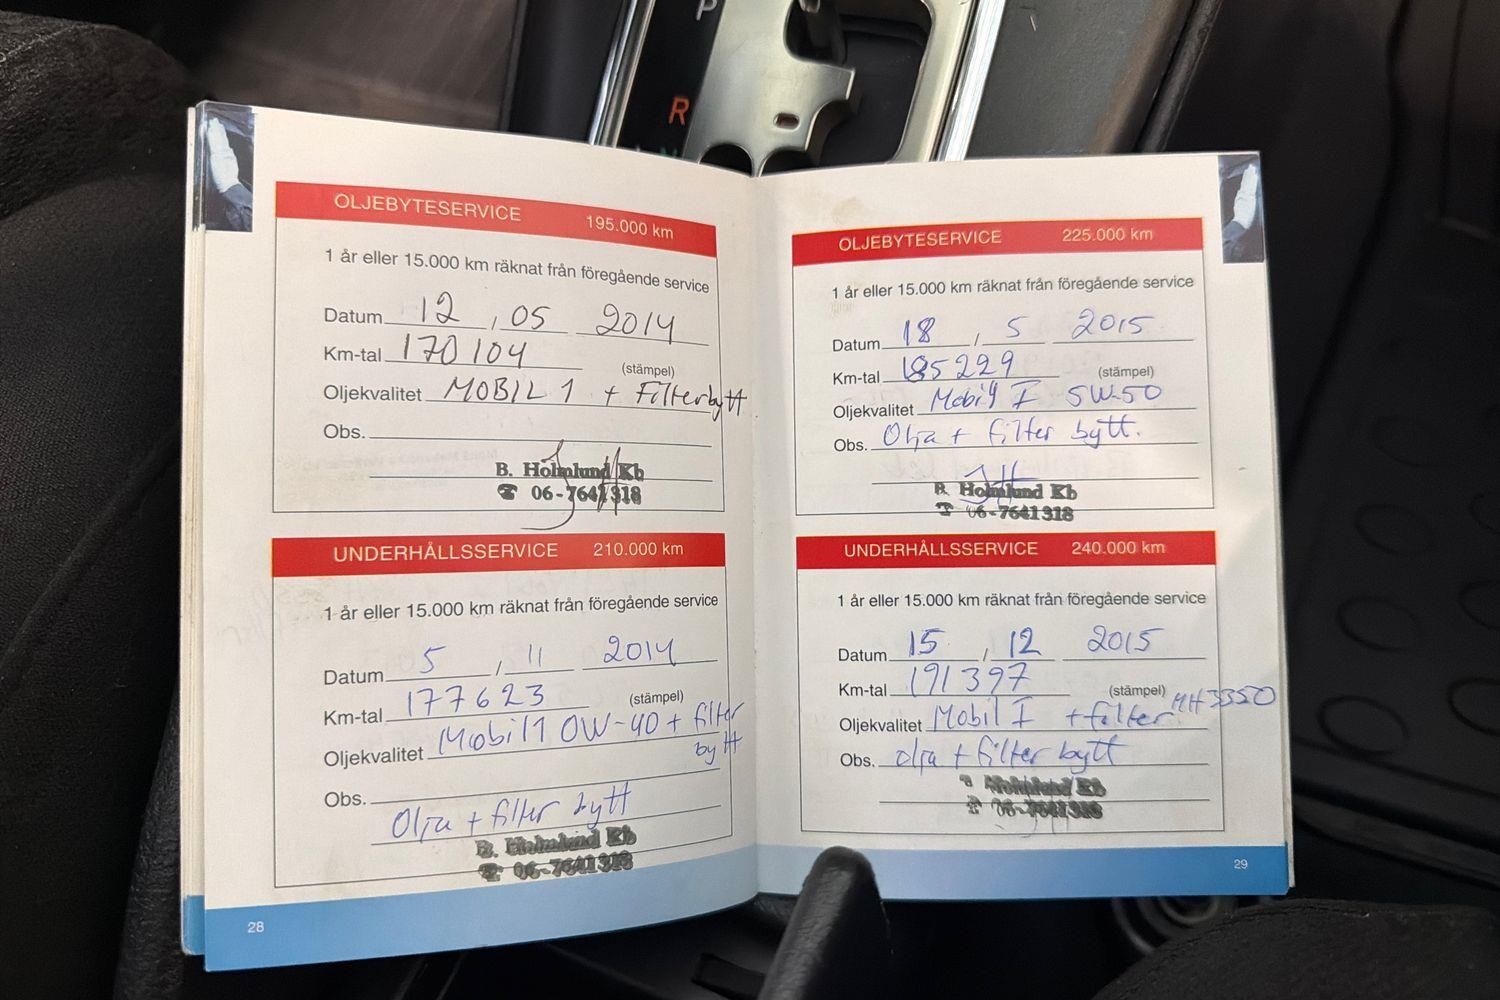 P
R
OLJEBYTESERVICE 195.000 km
1 år eller 15.000 km räknat från föregående service
Datum 12 , 05 2014
Km-tal 170104 (stämpel)
Oljekvalitet MOBIL 1 + Filterbytt
Obs.
B. Holmlund Kb
☎ 06-7641318
UNDERHÅLLSSERVICE 210.000 km
1 år eller 15.000 km räknat från föregående service
Datum 5 , 11 2014
Km-tal 177623 (stämpel)
Oljekvalitet Mobil1 0W-40 + filter
bytt
Obs.
Olja + filter bytt
B. Holmlund Kb
☎ 06-7641318
28
OLJEBYTESERVICE 225.000 km
1 år eller 15.000 km räknat från föregående service
Datum 18 , 5 2015
Km-tal 185229 (stämpel)
Oljekvalitet Mobil I 5W-50
Obs. Olja + filter bytt.
B. Holmlund Kb
☎ 06-7641318
UNDERHÅLLSSERVICE 240.000 km
1 år eller 15.000 km räknat från föregående service
Datum 15 , 12 2015
Km-tal 191397 (stämpel)
Oljekvalitet Mobil I + filter MH3350
Obs. olja + filter bytt
Holmlund Kb
☎ 06-7641318
29